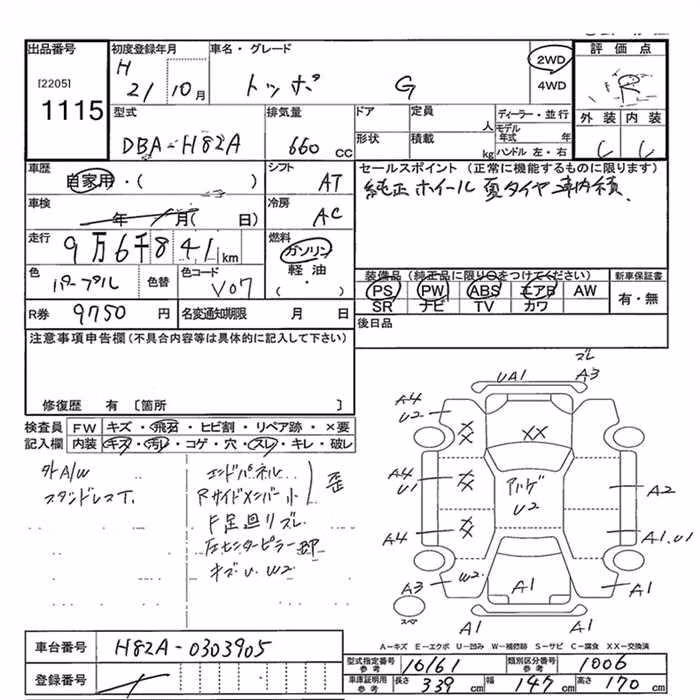 出品番号 初度登録年月 車名・グレード 2WD 4WD 評価点
[2205] H 21 10月 トッポ G R
1115
型式 排気量 ドア 定員 人 ディーラー・並行 外装 内装
DBA-H82A 660 cc 形状 積載 kg モデル年式 年 ハンドル 左・右 C C
車歴 自家用・( ) シフト AT セールスポイント (正常に機能するものに限ります)
純正ホイール 夏タイヤ 車内積
車検 年 月( 日) 冷房 AC
走行 9万6千841km 燃料 ガソリン 軽油 ( )
色 パープル 色替 色コード V07
装備品 (純正品に限り○をつけてください) 新車保証書
PS PW ABS エアB AW 有・無
SR ナビ TV カワ
R券 9750円 名変通知期限 月 日 後日品
注意事項申告欄(不具合内容等は具体的に記入して下さい)
修復歴 有 [箇所 ]
検査員 FW キズ・飛石・ヒビ割・リペア跡・×要
記入欄 内装 キズ・汚レ・コゲ・穴・スレ・キレ・破レ
外A/W
スタッドレスT.
エンドパネル
Rサイドメンバー小 歪
F足廻リズレ
左センターピラー部
キズU W2
ズレ
UA1 A3
A4
U2 XX XX
A4
U1 XX U2 A2
A4 XX A1.U1
A3 W2 A1 A1
スペア A1 A1
A-キズ E-エクボ U-凹み W-補修跡 S-サビ C-腐食 XX-交換済
車台番号 H82A-0303905
登録番号
型式指定番号 参考 16161 類別区分番号 参考 1006
車庫証明用 参考 長さ 339cm 幅 147cm 高さ 170cm